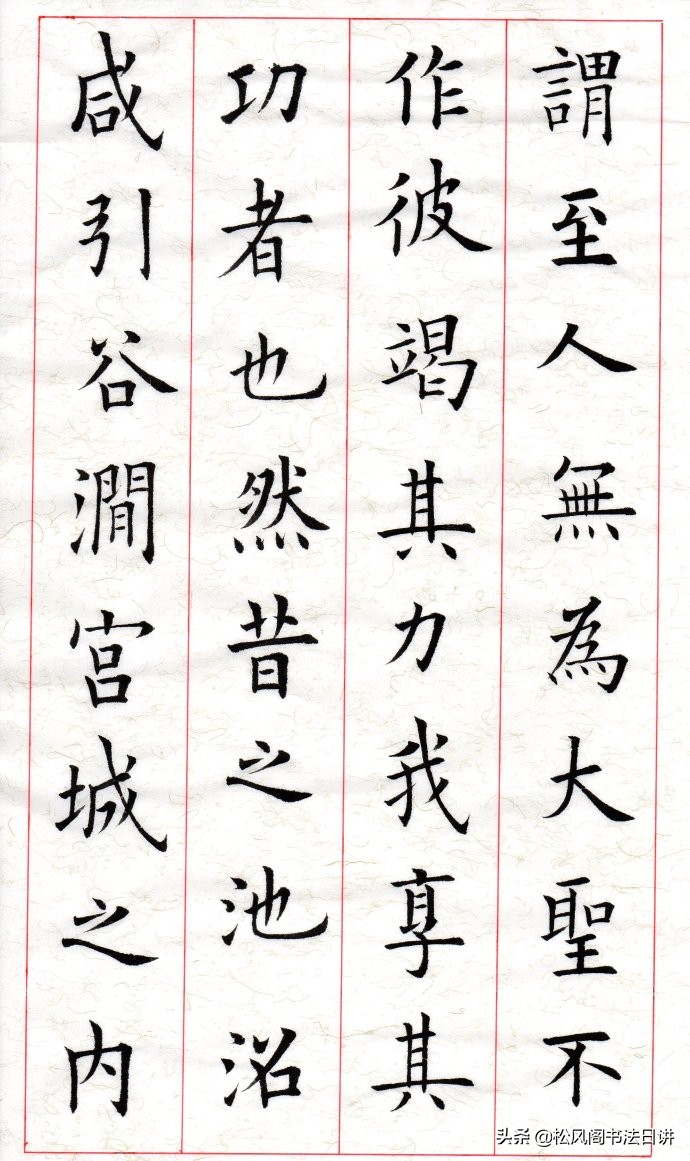 謂至人無為大聖不
作彼竭其力我享其
功者也然昔之池沼
咸引谷澗宮城之内
头条 @松风阁书法日讲